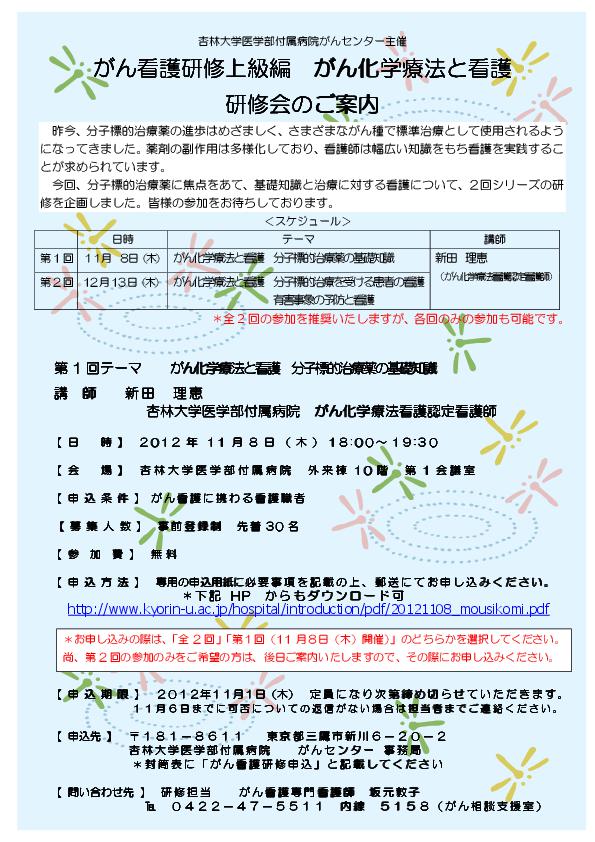 杏林大学医学部付属病院がんセンター主催
がん看護研修上級編　がん化学療法と看護
研修会のご案内
昨今、分子標的治療薬の進歩はめざましく、さまざまながん種で標準治療として使用されるよう
になってきました。薬剤の副作用は多様化しており、看護師は幅広い知識をもち看護を実践するこ
とが求められています。
今回、分子標的治療薬に焦点をあて、基礎知識と治療に対する看護について、２回シリーズの研
修を企画しました。皆様の参加をお待ちしております。
＜スケジュール＞
日時　テーマ　講師
第１回　11月　8日（木）　がん化学療法と看護　分子標的治療薬の基礎知識　新田　理恵
（がん化学療法看護認定看護師）
第２回　12月13日（木）　がん化学療法と看護　分子標的治療を受ける患者の看護
有害事象の予防と看護
＊全２回の参加を推奨いたしますが、各回のみの参加も可能です。
第１回テーマ　がん化学療法と看護　分子標的治療薬の基礎知識
講　師　新田　理恵
杏林大学医学部付属病院　がん化学療法看護認定看護師
【日　時】　2012年 11月8日（木）18:00～19:30
【会　場】　杏林大学医学部付属病院　外来棟10階　第１会議室
【申込条件】　がん看護に携わる看護職者
【募集人数】　事前登録制　先着30名
【参加費】　無料
【申込方法】　専用の申込用紙に必要事項を記載の上、郵送にてお申し込みください。
＊下記 HP からもダウンロード可
http://www.kyorin-u.ac.jp/hospital/introduction/pdf/20121108_mousikomi.pdf
＊お申し込みの際は、「全２回」「第１回（11月8日（木）開催）」のどちらかを選択してください。
尚、第２回の参加のみをご希望の方は、後日ご案内いたしますので、その際にお申し込みください。
【申込期限】　2012年11月1日（木）　定員になり次第締め切らせていただきます。
11月6日までに可否についての返信がない場合は担当者までご連絡ください。
【申込先】　〒１８１－８６１１　東京都三鷹市新川６－２０－２
杏林大学医学部付属病院　がんセンター 事務局
＊封筒表に「がん看護研修申込」と記載してください
【問い合わせ先】　研修担当　がん看護専門看護師　坂元敦子
℡　０４２２－４７－５５１１　内線　５１５８（がん相談支援室）